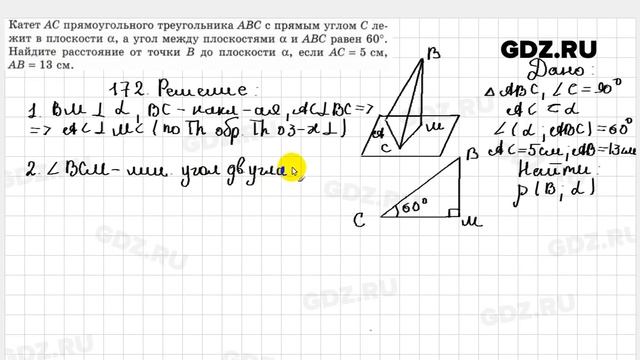 Катет AC прямоугольного треугольника ABC с прямым углом C ле-
жит в плоскости α, а угол между плоскостями α и ABC равен 60°.
Найдите расстояние от точки B до плоскости α, если AC = 5 см,
AB = 13 см.
GDZ.RU
172. Решение:
1. BM ⊥ α, BC – накл-ая, AC ⊥ BC =>
=> AC ⊥ MC (по Th обр. Th о 3-х ⊥)
2. ∠BCM – лин. угол двугла
B
A
M
C
B
C
60°
M
Дано:
△ABC, ∠C = 90°
AC ⊂ α
∠(α, ABC) = 60°
AC = 5см, AB = 13см
Найти:
ρ(B; α)